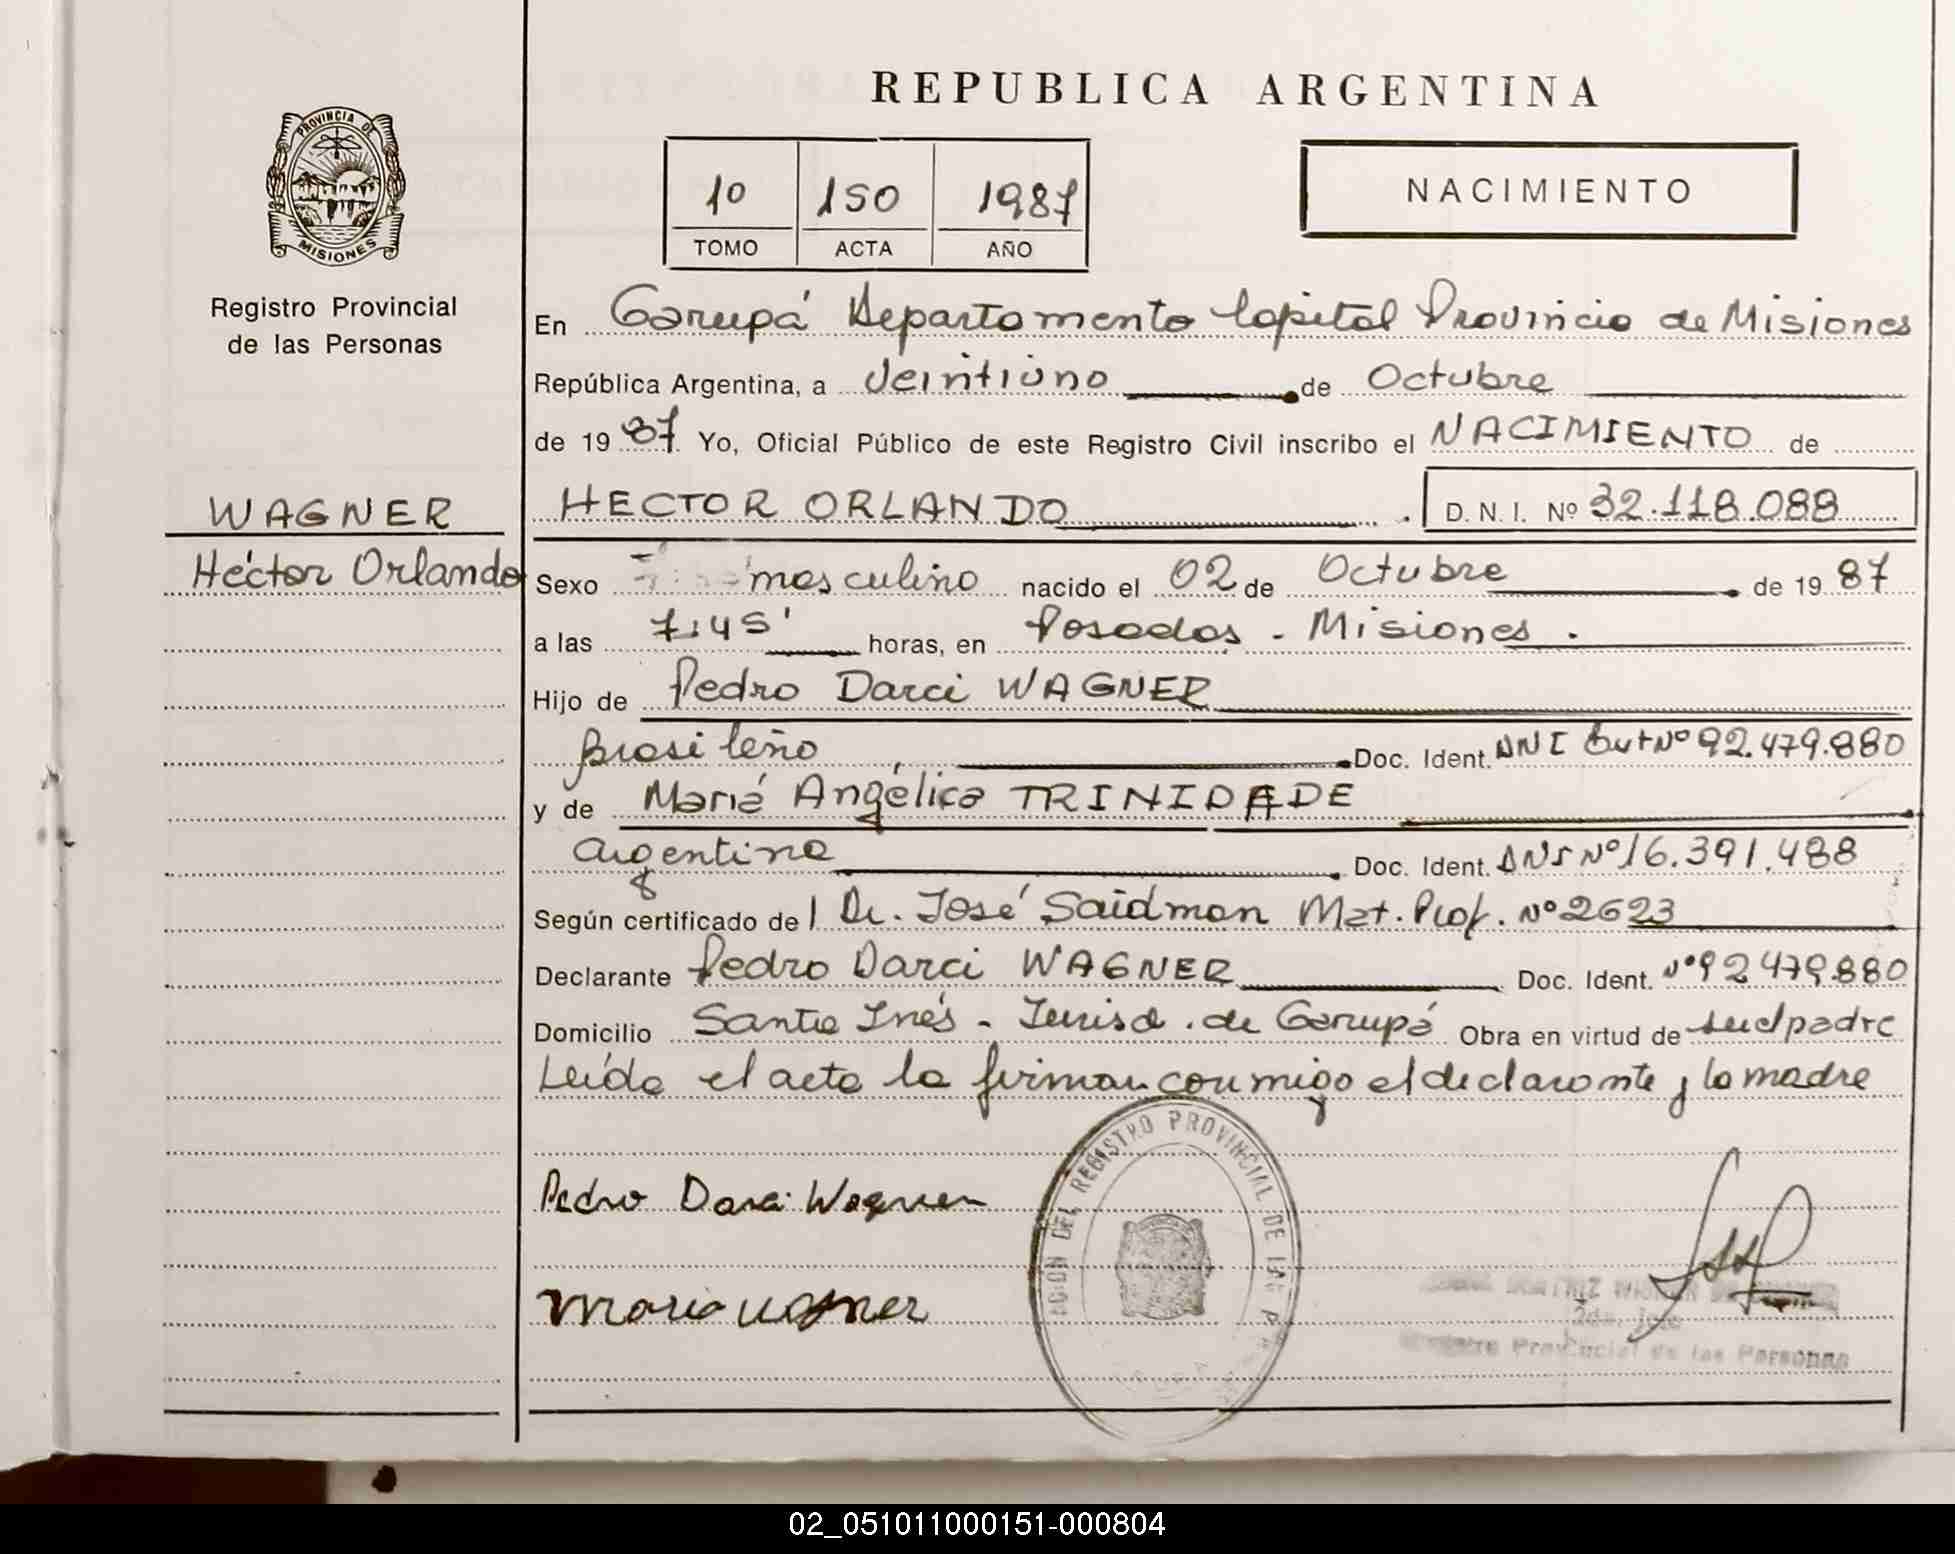 REPUBLICA ARGENTINA
PROVINCIA DE
MISIONES
Registro Provincial
de las Personas
10 150 1987
TOMO ACTA AÑO
NACIMIENTO
En Garupá Departamento Capital Provincia de Misiones
República Argentina, a Veintiuno de Octubre
de 1987 Yo, Oficial Público de este Registro Civil inscribo el NACIMIENTO de
WAGNER
Héctor Orlando
HECTOR ORLANDO D. N. I. Nº 32.118.088
Sexo masculino nacido el 02 de Octubre de 1987
a las 7:45' horas, en Posadas - Misiones.
Hijo de Pedro Darci WAGNER
brasileño Doc. Ident. DNI Nº 92.479.880
y de Mariá Angélica TRINIDADE
argentina Doc. Ident. DNI Nº 16.391.488
Según certificado de Dr. José Saidman Mat. Prof. Nº 2623
Declarante Pedro Darci WAGNER Doc. Ident. Nº 92479.880
Domicilio Santa Inés - Jurisd. de Garupá Obra en virtud de padre
Leída el acta la firman conmigo el declarante y la madre
Pedro Darci Wagner
Maria Wagner
DEL REGISTRO PROVINCIAL DE LAS
2da. Jefe
Registro Provincial de las Personas
02_051011000151-000804